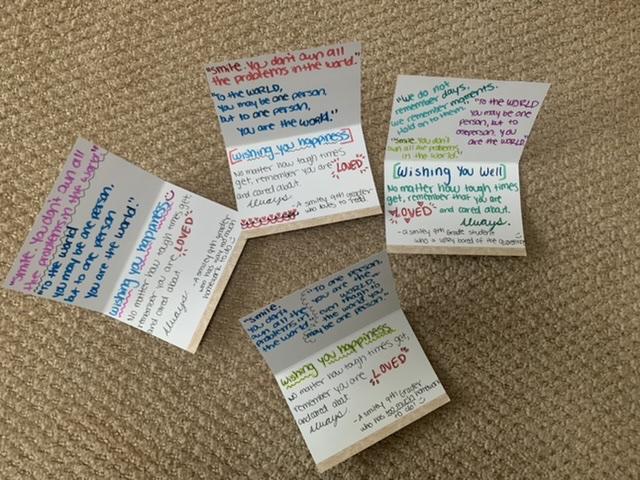 "Smile. You don't own all
the problems in the world."
"To the WORLD,
You may be one person,
but to one person,
you are the world."
[Wishing you happiness]
No matter how tough times
get, remember you are LOVED
and cared about.
Always
-A smiley 9th grader
who loves to read
"We do not
remember days.
we remember moments.
Hold on to them."
"Smile. You don't
own all the problems
in the world."
"To the WORLD
You may be one
person, but to
one person, you
are the WORLD"
[Wishing You Well]
No matter how tough times
get, remember that you are
LOVED and cared about.
Always.
-a smiley 9th grade student
who is very bored of the quarantine
"Smile. You don't own all
the problems in the world."
"To the World
You may be one person,
but to one person
You are the world"
Wishing you happiness
No matter how tough times get,
remember you are LOVED
and cared about.
Always
-A smiley 9th grader
who has way too much
homework to do
"Smile.
you don't
own all the
problems in
the world."
"To one person,
you are the
WORLD,
even though to
the world you
may be one person"
Wishing you happiness
No matter how tough times get,
remember you are LOVED
and cared about.
Always
-A smiley 9th Grader
who has too much homework
to do!